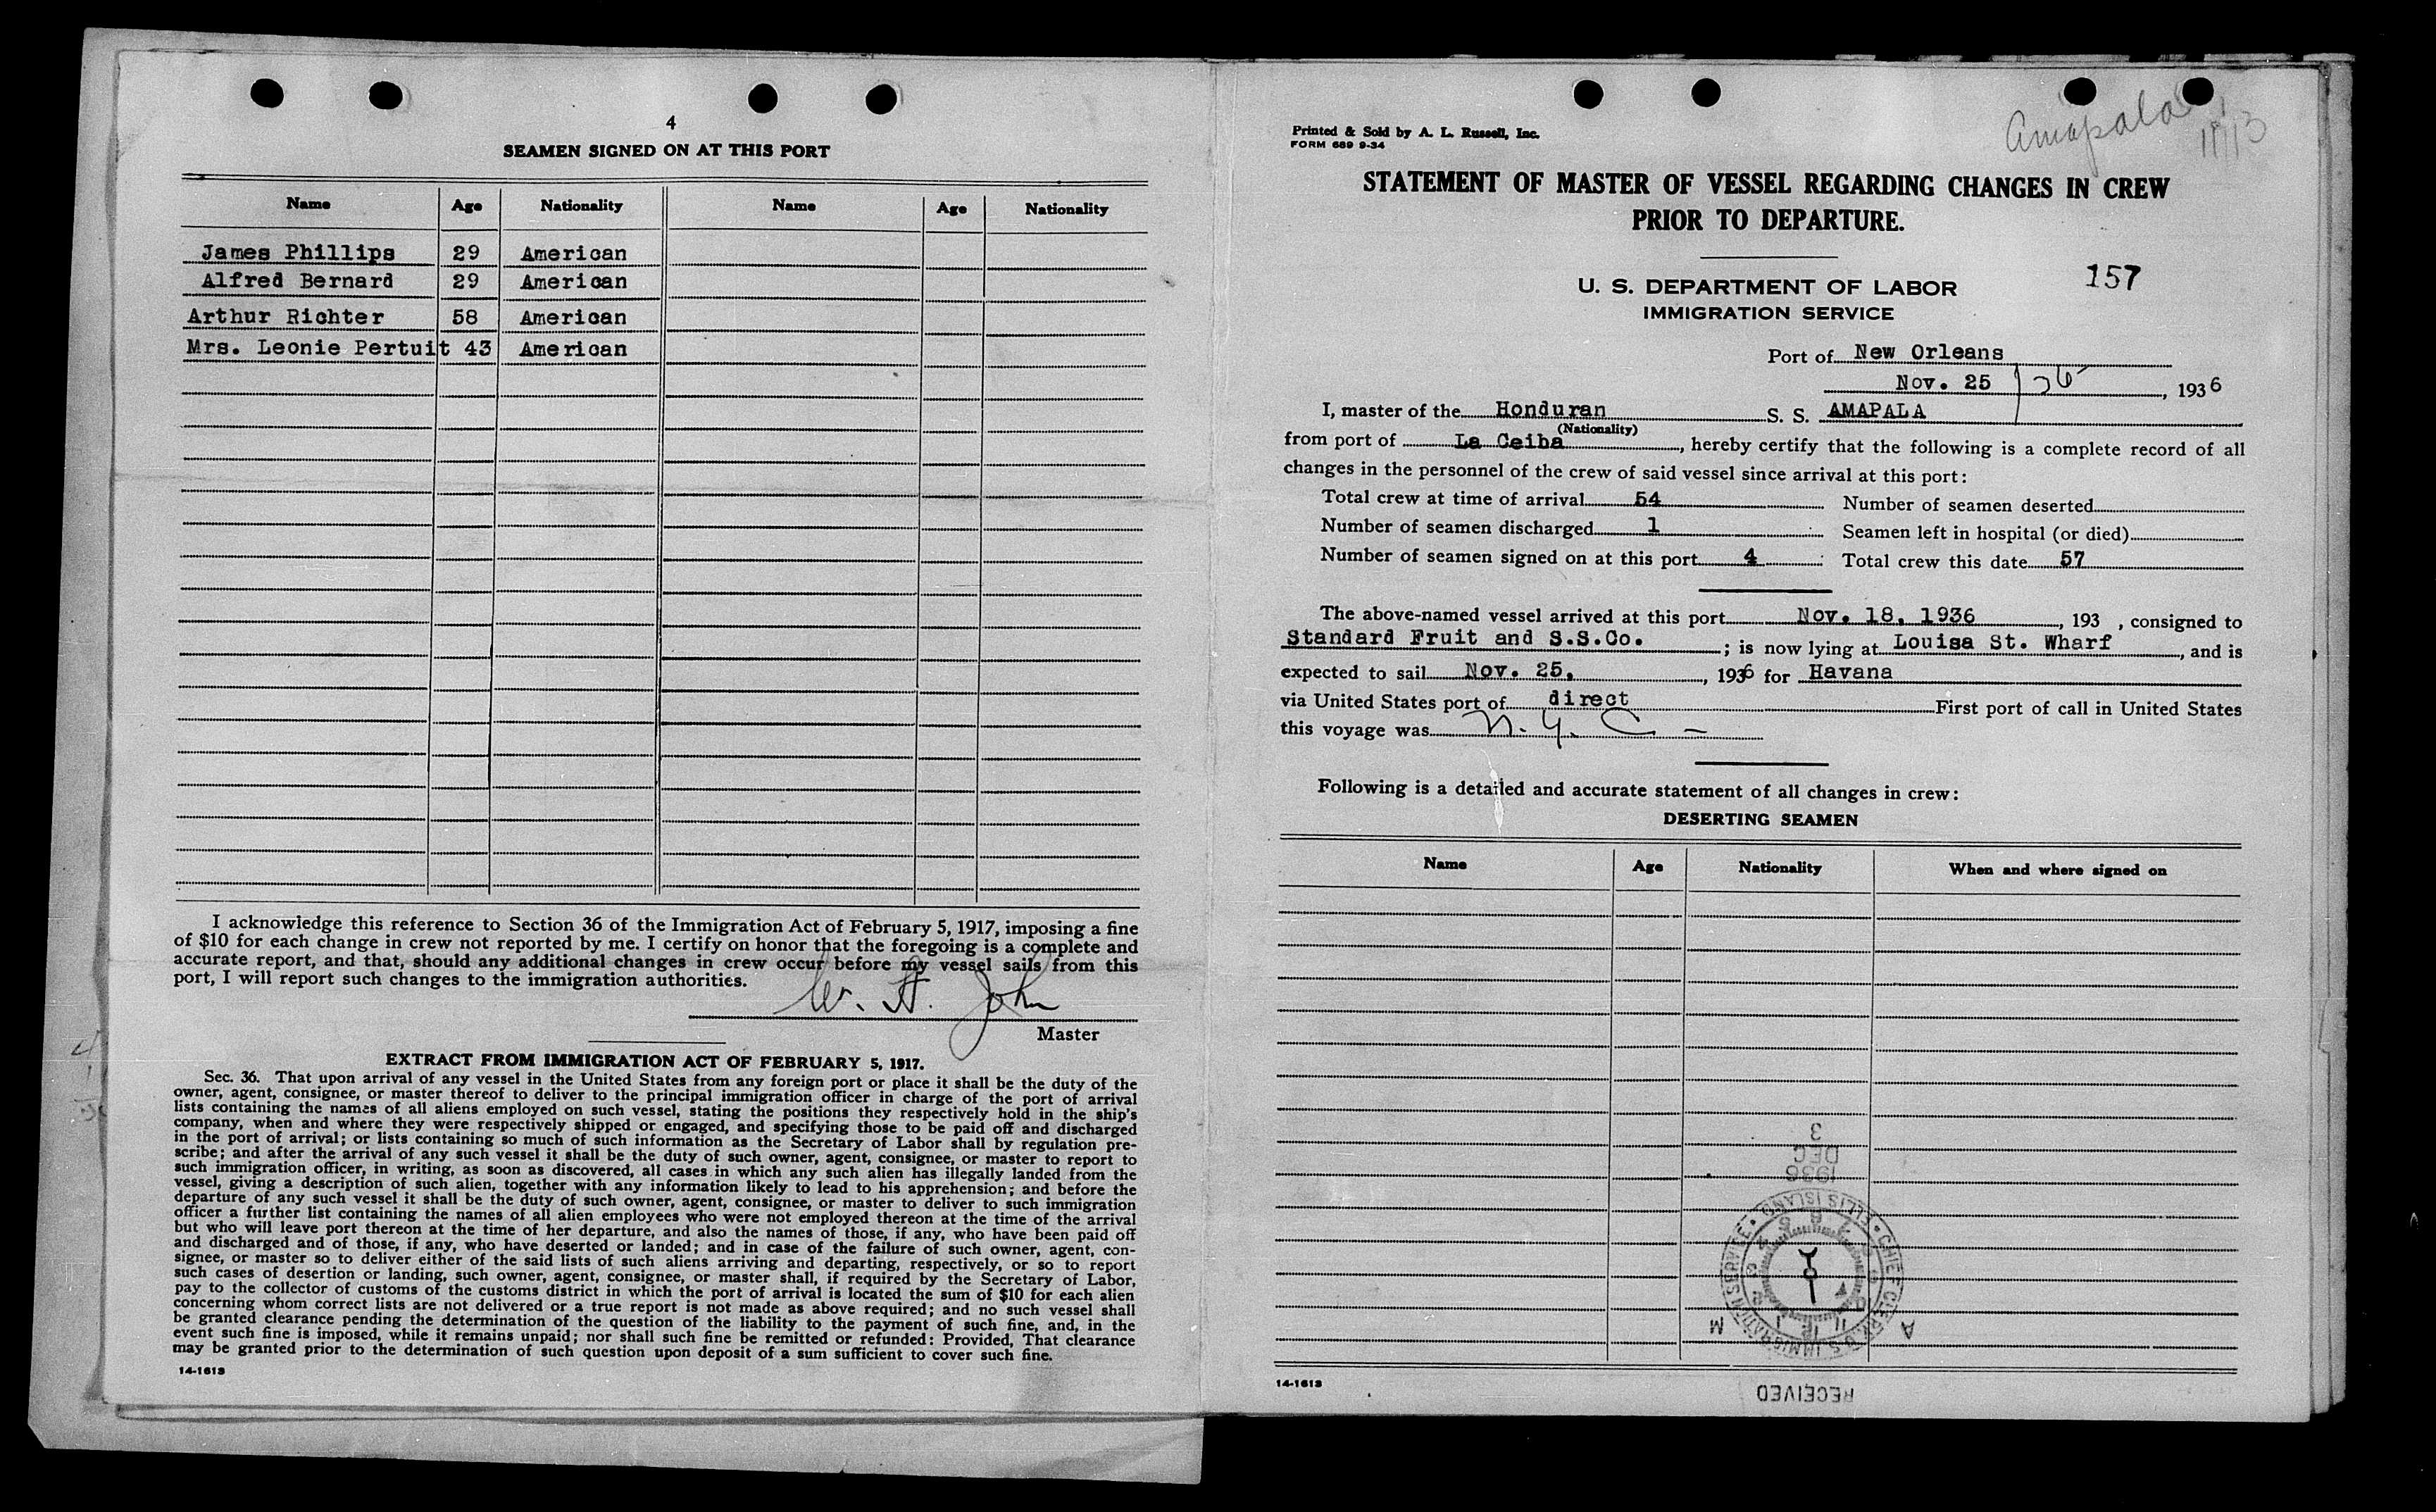 4
SEAMEN SIGNED ON AT THIS PORT
Name Age Nationality Name Age Nationality
James Phillips 29 American
Alfred Bernard 29 American
Arthur Richter 58 American
Mrs. Leonie Pertuit 43 American
I acknowledge this reference to Section 36 of the Immigration Act of February 5, 1917, imposing a fine
of $10 for each change in crew not reported by me. I certify on honor that the foregoing is a complete and
accurate report, and that, should any additional changes in crew occur before my vessel sails from this
port, I will report such changes to the immigration authorities.
W. H. John
Master
EXTRACT FROM IMMIGRATION ACT OF FEBRUARY 5, 1917.
Sec. 36. That upon arrival of any vessel in the United States from any foreign port or place it shall be the duty of the
owner, agent, consignee, or master thereof to deliver to the principal immigration officer in charge of the port of arrival
lists containing the names of all aliens employed on such vessel, stating the positions they respectively hold in the ship's
company, when and where they were respectively shipped or engaged, and specifying those to be paid off and discharged
in the port of arrival; or lists containing so much of such information as the Secretary of Labor shall by regulation pre-
scribe; and after the arrival of any such vessel it shall be the duty of such owner, agent, consignee, or master to report to
such immigration officer, in writing, as soon as discovered, all cases in which any such alien has illegally landed from the
vessel, giving a description of such alien, together with any information likely to lead to his apprehension; and before the
departure of any such vessel it shall be the duty of such owner, agent, consignee, or master to deliver to such immigration
officer a further list containing the names of all alien employees who were not employed thereon at the time of the arrival
but who will leave port thereon at the time of her departure, and also the names of those, if any, who have been paid off
and discharged and of those, if any, who have deserted or landed; and in case of the failure of such owner, agent, con-
signee, or master so to deliver either of the said lists of such aliens arriving and departing, respectively, or so to report
such cases of desertion or landing, such owner, agent, consignee, or master shall, if required by the Secretary of Labor,
pay to the collector of customs of the customs district in which the port of arrival is located the sum of $10 for each alien
concerning whom correct lists are not delivered or a true report is not made as above required; and no such vessel shall
be granted clearance pending the determination of the question of the liability to the payment of such fine, and, in the
event such fine is imposed, while it remains unpaid; nor shall such fine be remitted or refunded: Provided, That clearance
may be granted prior to the determination of such question upon deposit of a sum sufficient to cover such fine.
14-1613
Amapala
11/13
Printed & Sold by A. L. Russell, Inc.
FORM 689 9-34
STATEMENT OF MASTER OF VESSEL REGARDING CHANGES IN CREW
PRIOR TO DEPARTURE.
157
U. S. DEPARTMENT OF LABOR
IMMIGRATION SERVICE
Port of New Orleans
Nov. 25, 1936
I, master of the Honduran S. S. AMAPALA
(Nationality)
from port of La Ceiba, hereby certify that the following is a complete record of all
changes in the personnel of the crew of said vessel since arrival at this port:
Total crew at time of arrival 54 Number of seamen deserted
Number of seamen discharged 1 Seamen left in hospital (or died)
Number of seamen signed on at this port 4 Total crew this date 57
The above-named vessel arrived at this port Nov. 18, 1936, 193 , consigned to
Standard Fruit and S.S.Co. ; is now lying at Louisa St. Wharf, and is
expected to sail Nov. 25, , 1936 for Havana
via United States port of direct First port of call in United States
this voyage was N. Y. C -
Following is a detailed and accurate statement of all changes in crew:
DESERTING SEAMEN
Name Age Nationality When and where signed on
3
DEC
1936
CHIEF CLERK U.S. IMMIGRATION SERVICE • ELLIS ISLAND •
A M
RECEIVED
14-1613